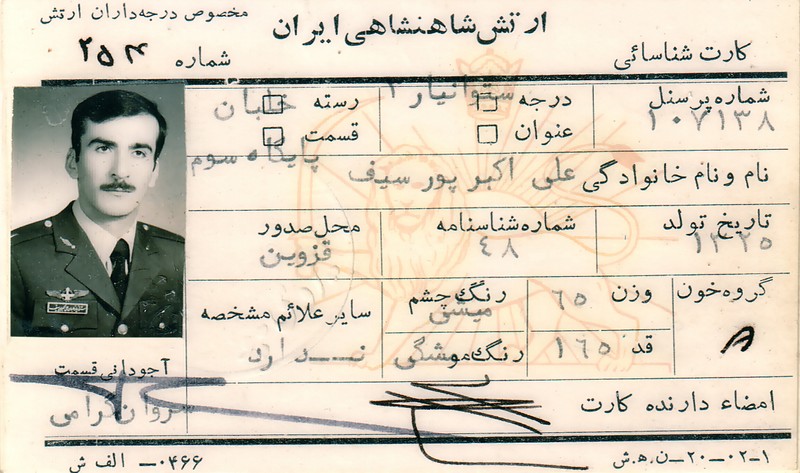 ارتش شاهنشاهی ایران
مخصوص درجه‌داران ارتش
کارت شناسائی
شماره ۲۵۴
شماره پرسنل ۱۰۷۱۳۸
درجه ستوانیار ۲
عنوان
رسته
قسمت پایگاه سوم
نام و نام خانوادگی علی اکبر پور سیف
تاریخ تولد ۱۳۲۵
شماره شناسنامه ۴۸
محل صدور قزوین
گروه خون A
وزن ۶۵
قد ۱۶۵
رنگ چشم میشی
رنگ مو مشگی
سایر علائم مشخصه ندارد
آجودانی قسمت
سروان گرامی
امضاء دارنده کارت
۱-۰۲-۲۰-ن.ه.ش
۰۴۶۶- الف ش